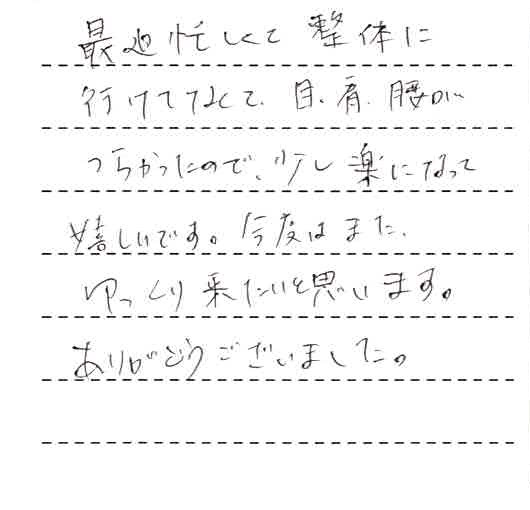 最近忙しくて 整体に
行けてなくて、目、肩、腰が
つらかったので、少し楽になって
嬉しいです。今度はまた、
ゆっくり来たいと思います。
ありがとうございました。